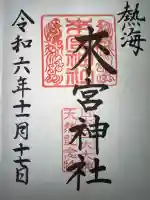 熱海
來宮神社
令和六年十一月十七日